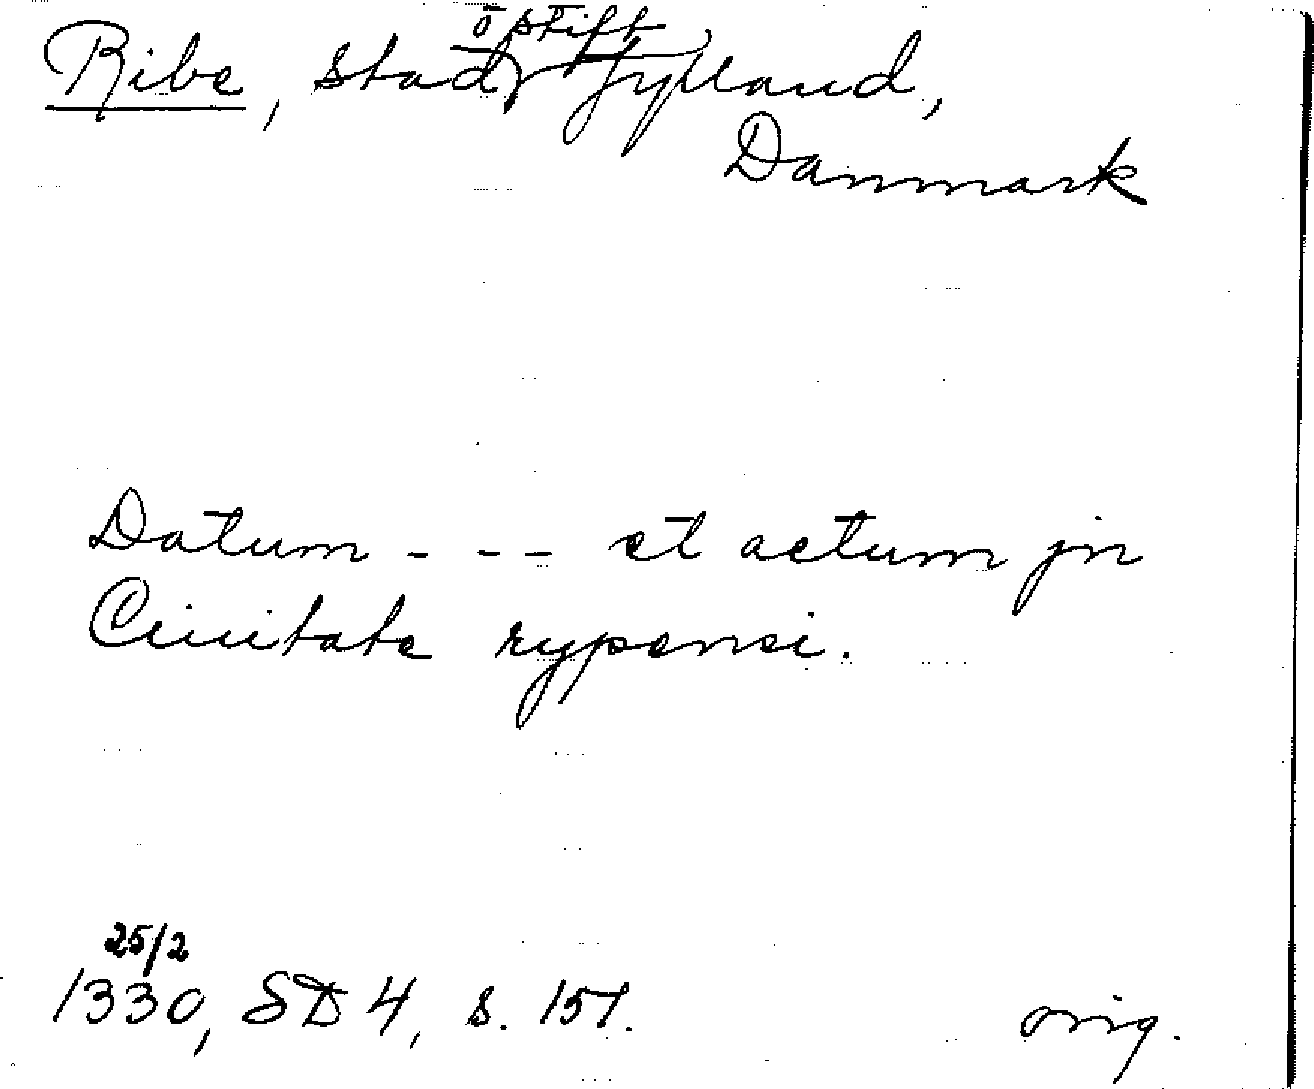 Ribe, stad o stift Jylland,
Danmark
Datum - - - et actum jn
Ciuitate rypensi.
25/2
1330, SD 4, s. 151.
orig.